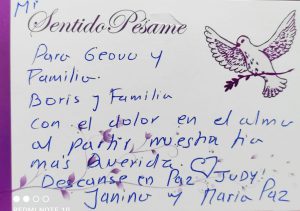 Mi
Sentido Pésame
Para Geova y
Familia.
Boris y Familia
con el dolor en el alma
al partir nuestra tia
mas querida. ♡ Judy!
Descanse en Paz
Janina y Maria Paz
REDMI NOTE 10